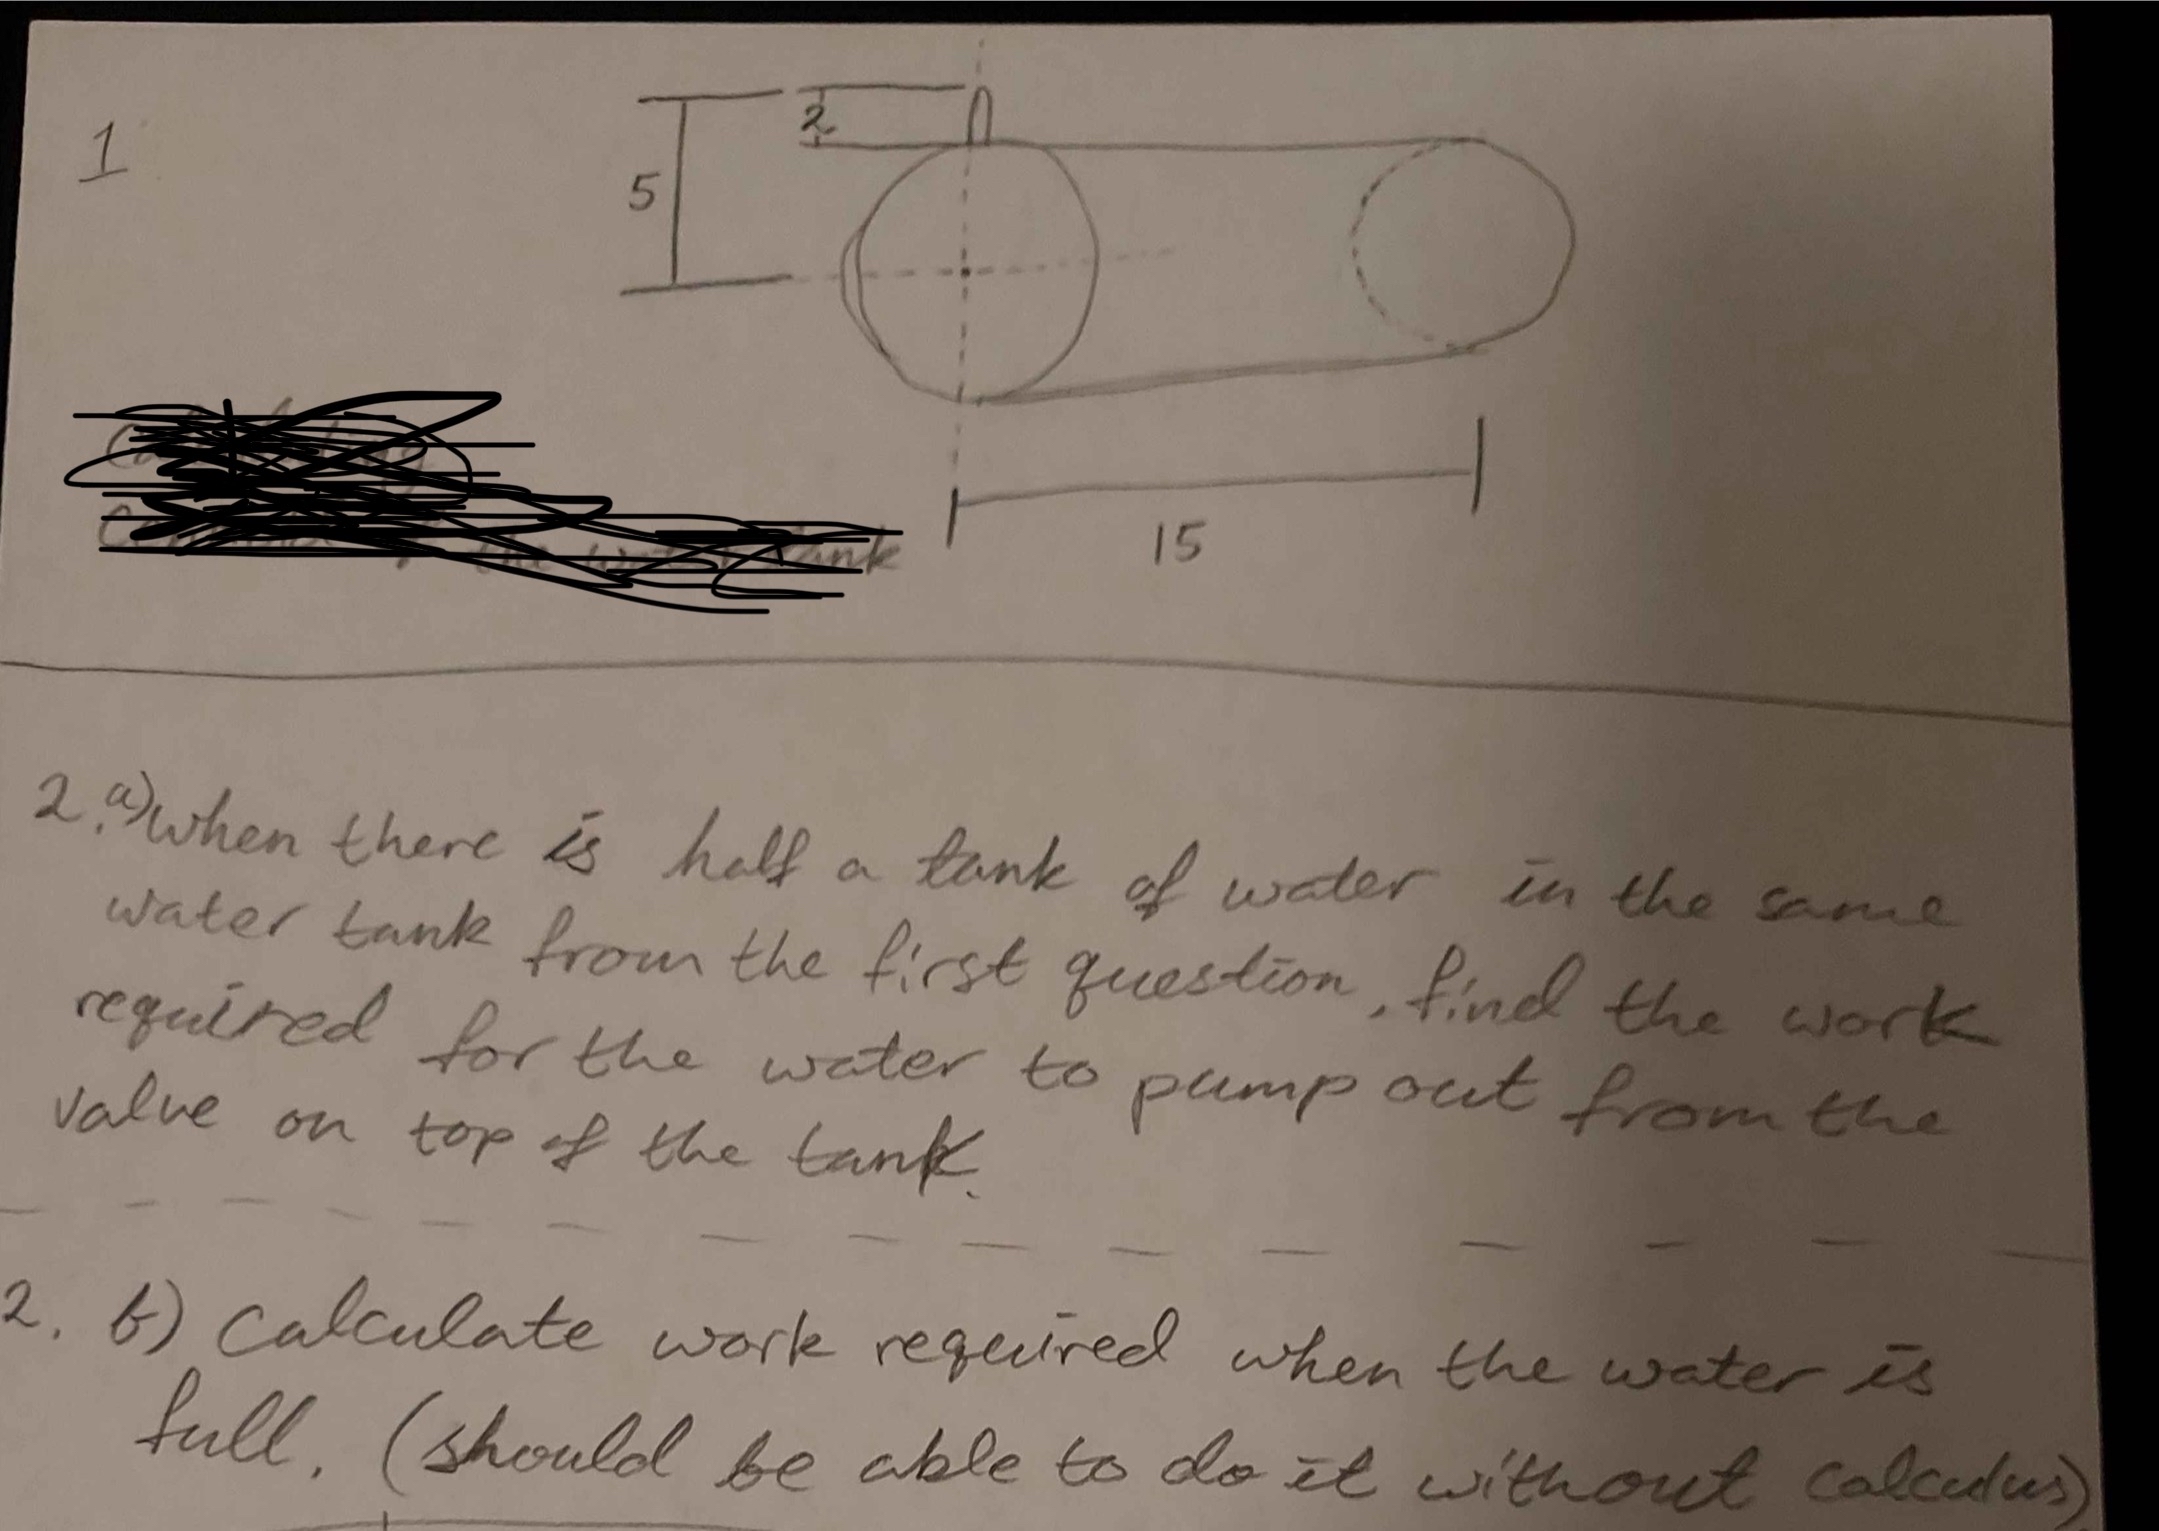 1
2
5
15
the water tank
2.a) when there is half a tank of water in the same
water tank from the first question, find the work
required for the water to pump out from the
valve on top of the tank.
2. b) Calculate work required when the water is
full. (should be able to do it without calculus)